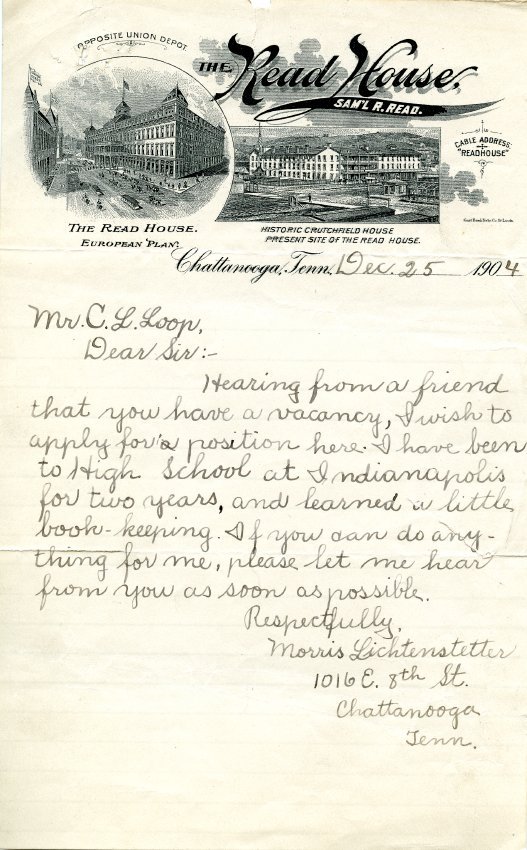 OPPOSITE UNION DEPOT.
THE Read House.
SAM'L R. READ.
CABLE ADDRESS
"READHOUSE"
THE READ HOUSE.
EUROPEAN PLAN.
HISTORIC CRUTCHFIELD HOUSE
PRESENT SITE OF THE READ HOUSE.
Chattanooga, Tenn. Dec. 25 1904
Mr. C. L. Loop,
Dear Sir:-
Hearing from a friend
that you have a vacancy, I wish to
apply for a position here. I have been
to High School at Indianapolis
for two years, and learned a little
book-keeping. If you can do any-
thing for me, please let me hear
from you as soon as possible.
Respectfully,
Morris Lichtenstetter
1016 E. 8th St.
Chattanooga
Tenn.